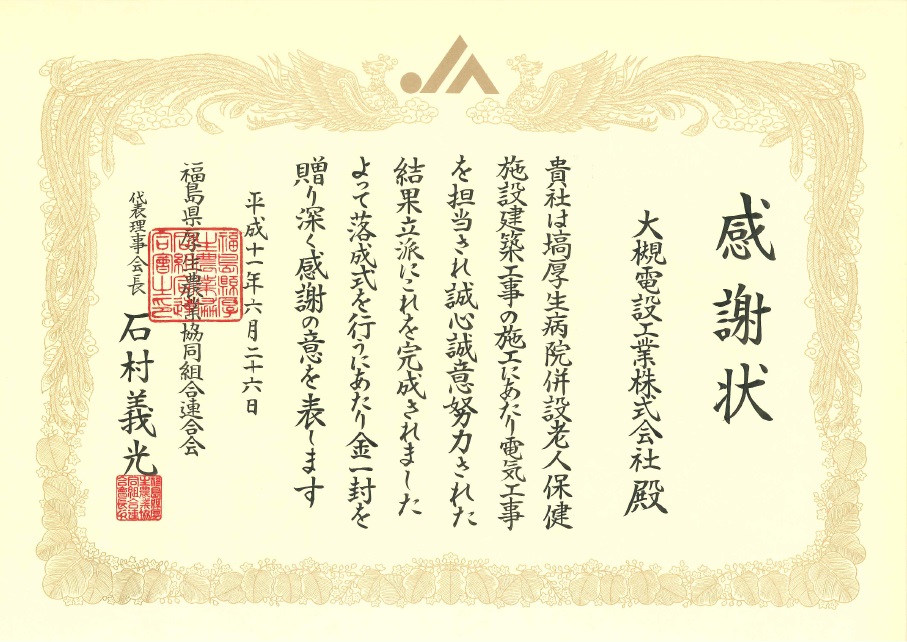 感謝状
大槻電設工業株式会社 殿
貴社は塙厚生病院併設老人保健
施設建築工事の施工にあたり電気工事
を担当され誠心誠意努力された
結果立派にこれを完成されました
よって落成式を行うにあたり金一封を
贈り深く感謝の意を表します
平成十一年六月二十六日
福島県厚生農業協同組合連合会
代表理事会長 石村義光
JA